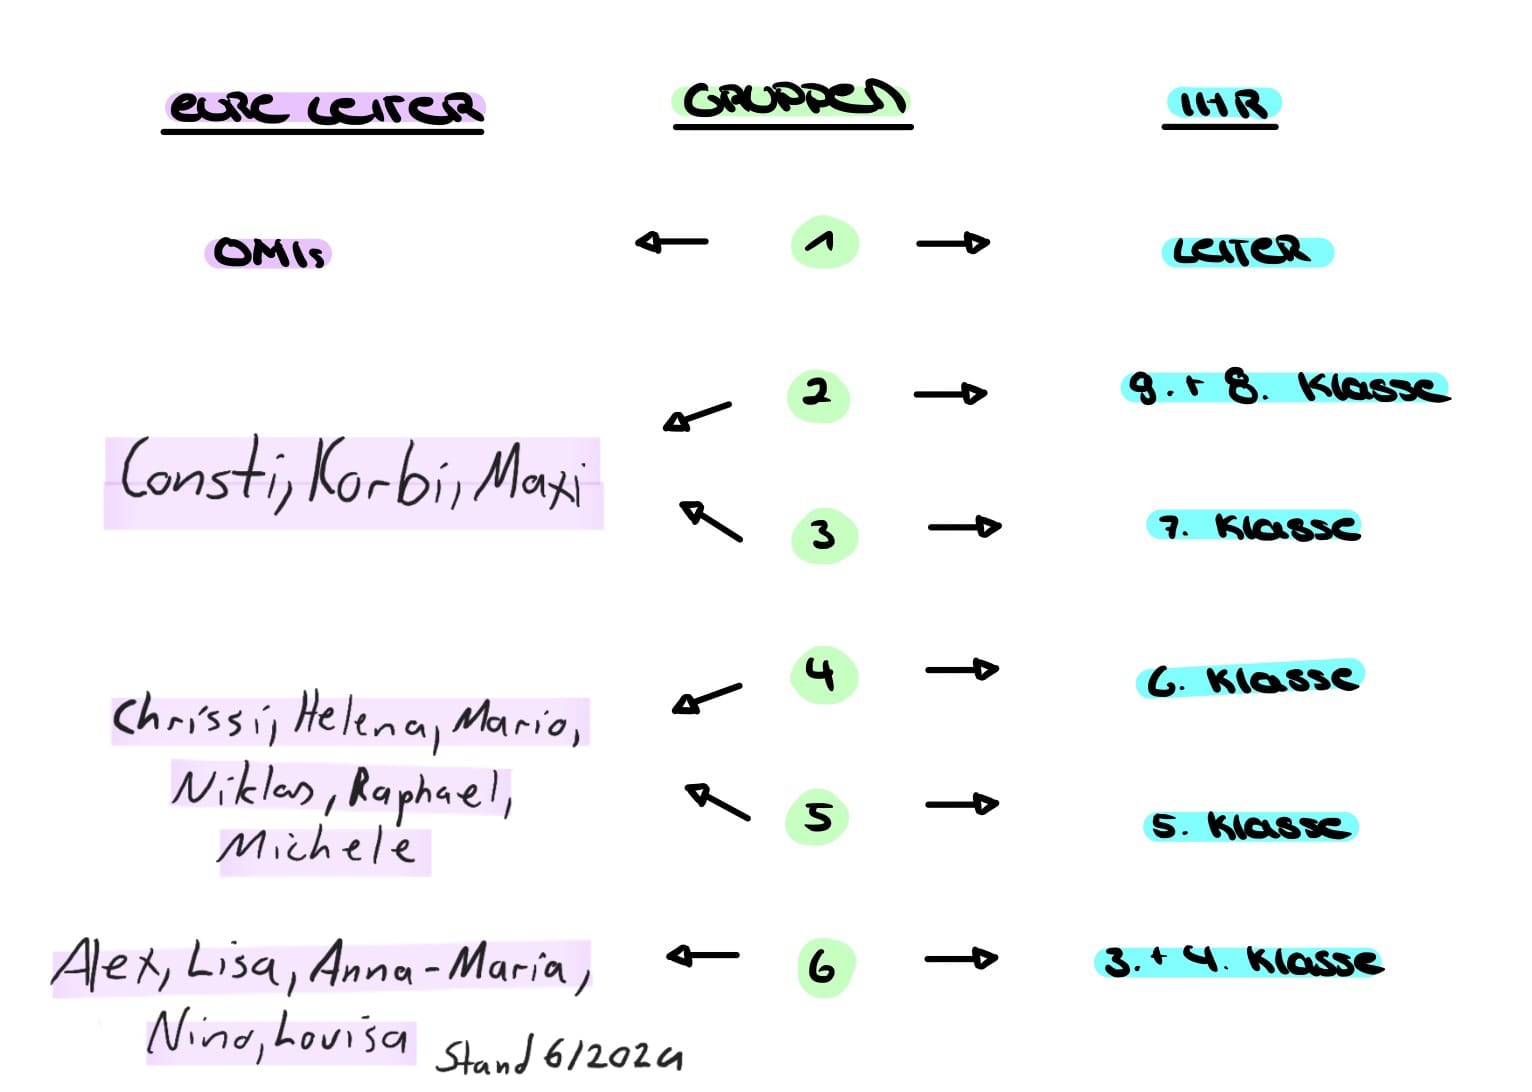 EURE LEITER GRUPPEN IHR
OMIs 1 LEITER
2 9. + 8. Klasse
Consti, Korbi, Maxi
3 7. Klasse
4 6. Klasse
Chrissi, Helena, Mario,
Niklas, Raphael,
5 5. Klasse
Michele
Alex, Lisa, Anna-Maria, 6 3. + 4. Klasse
Nino, Lovisa
Stand 6/2024